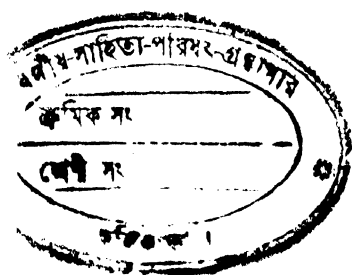 বঙ্গীয়-সাহিত্য-পারষৎ-গ্রন্থাগার
ক্রমিক সং
শ্রেণী সং